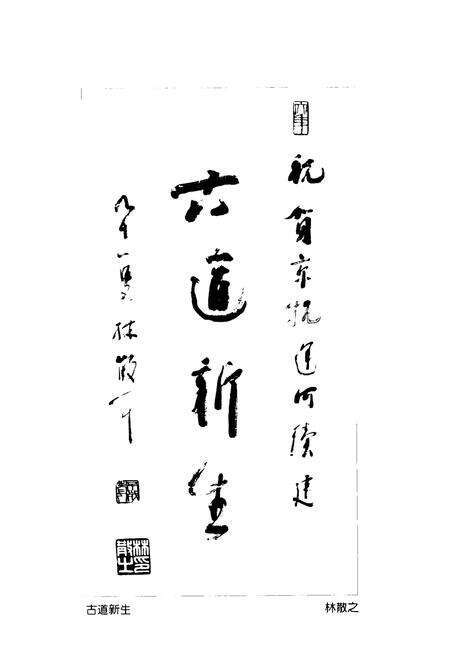 祝賀京杭運河續建
古道新生
九十一叟林散耳
林散之印
古道新生
林散之